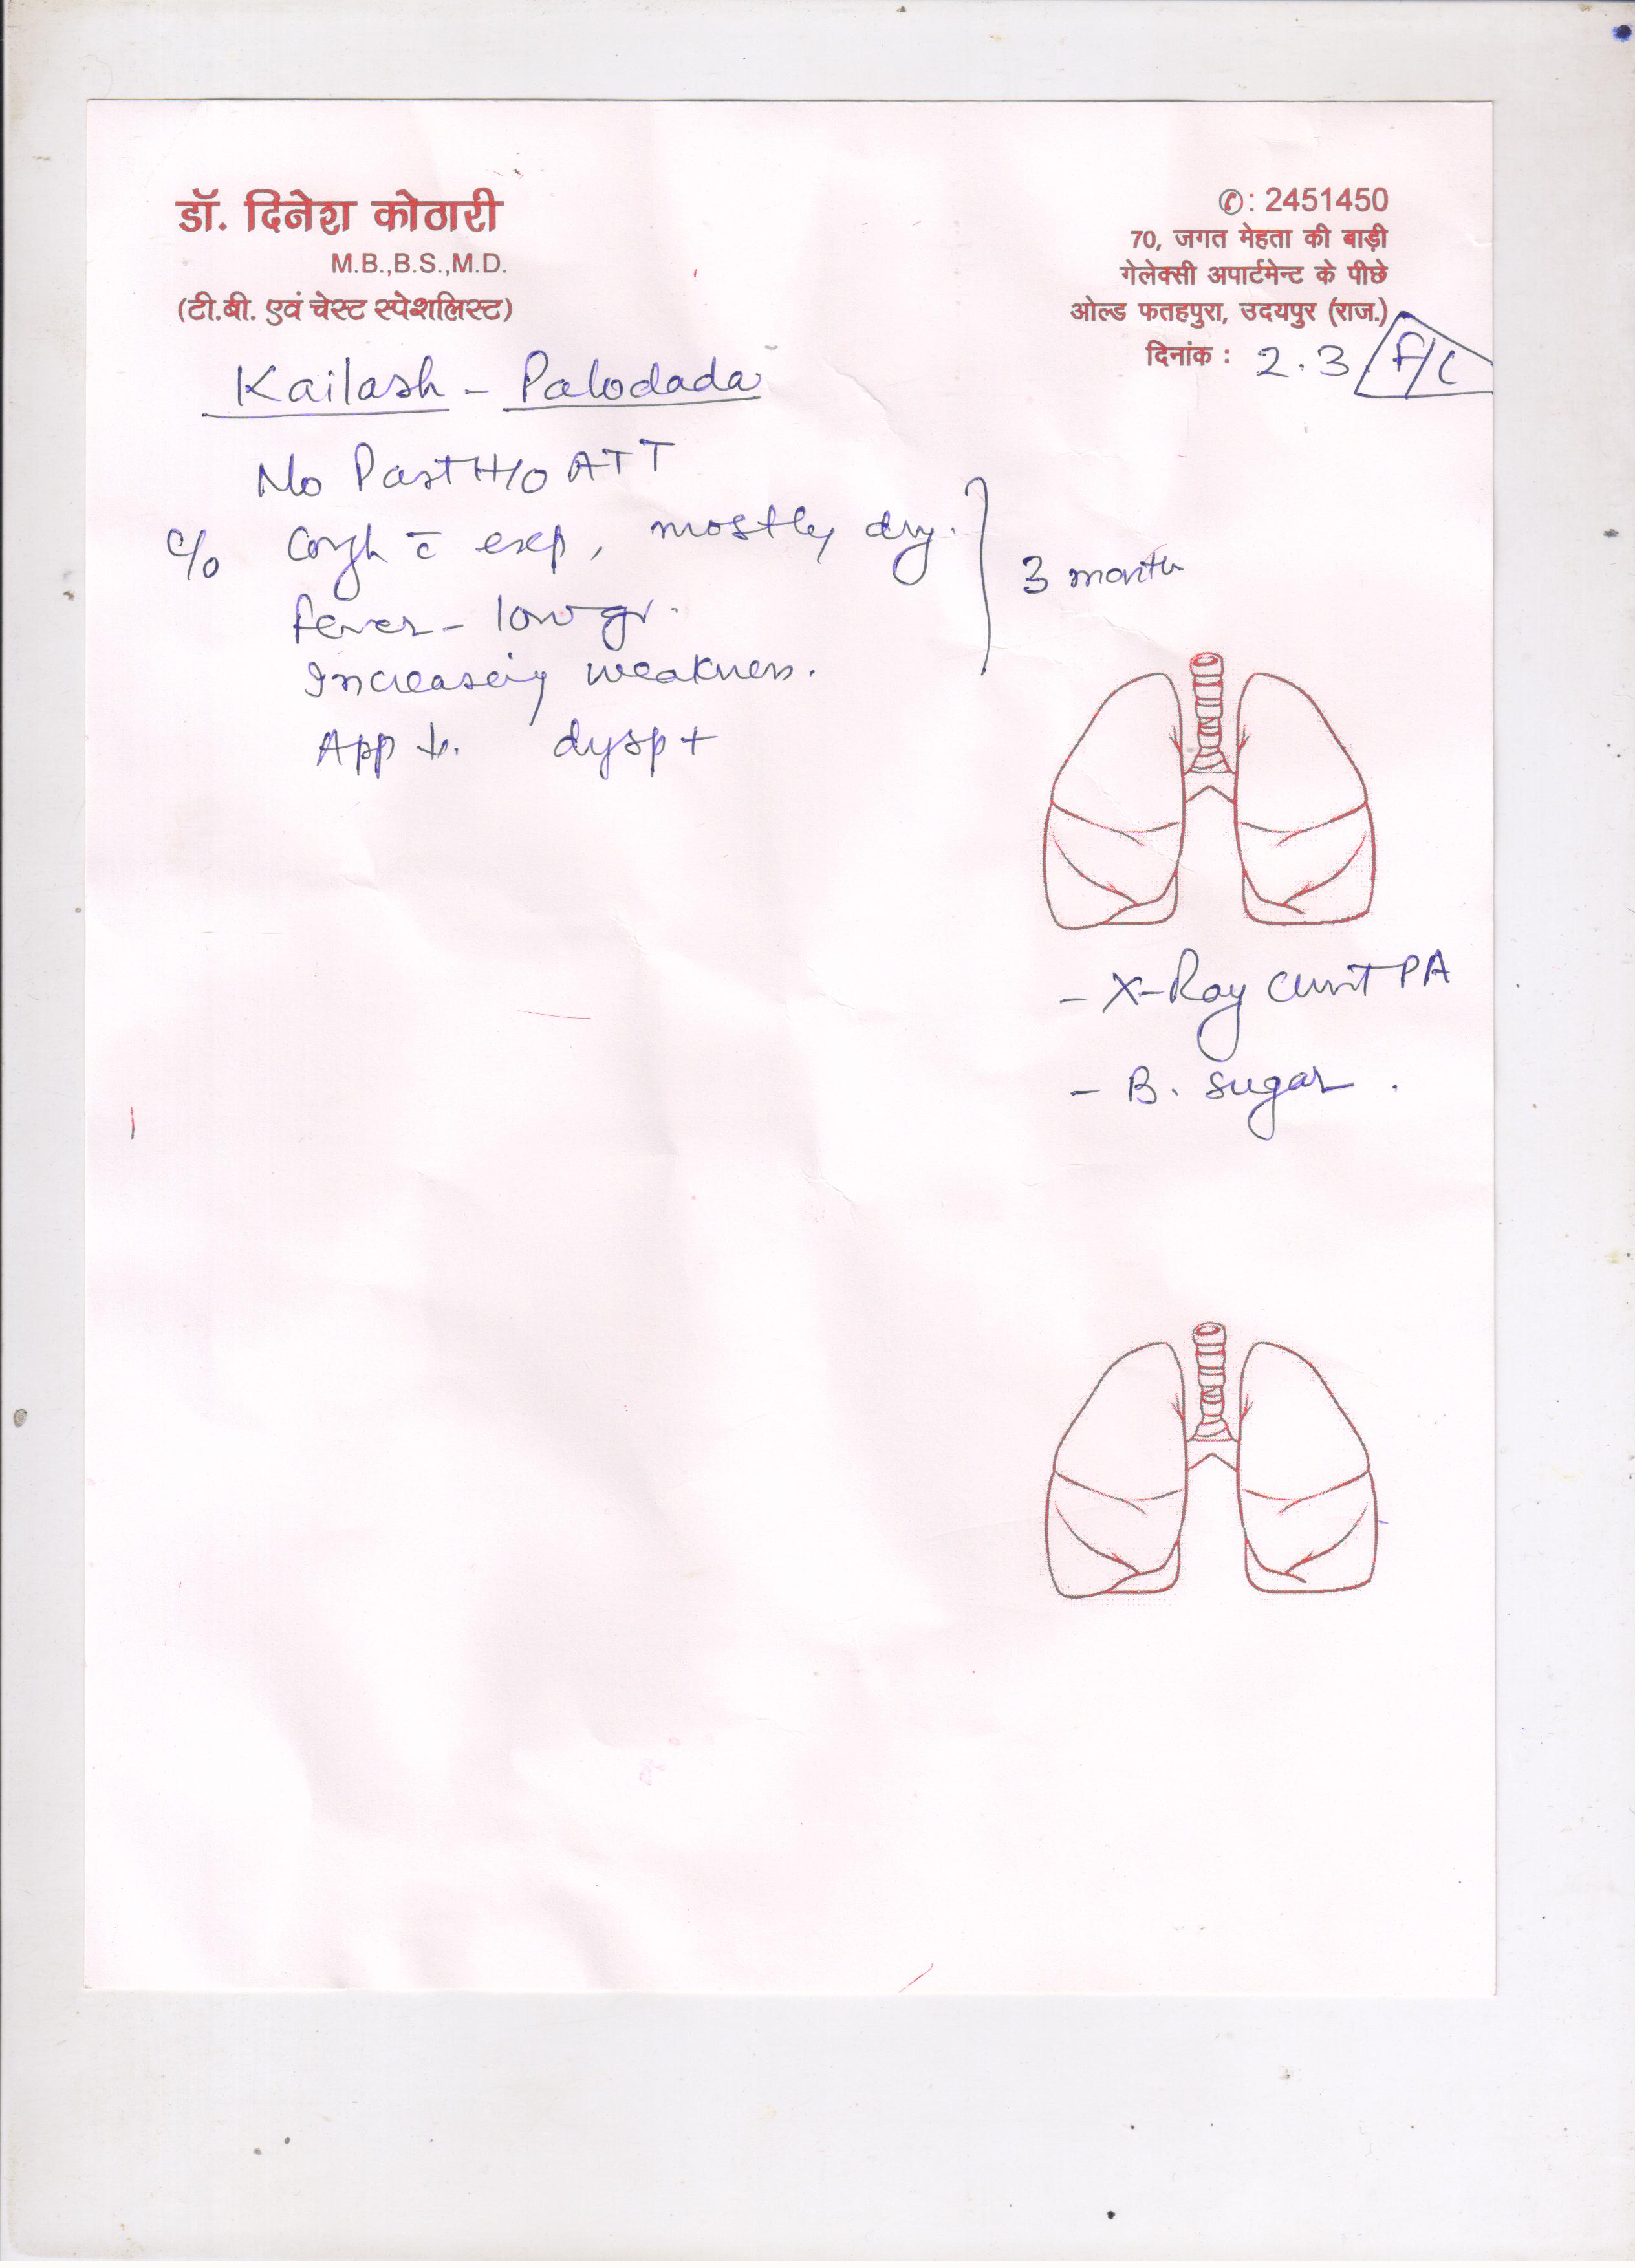 डॉ. दिनेश कोठारी
M.B.,B.S.,M.D.
(टी.बी. एवं चेस्ट स्पेशलिस्ट)
✆: 2451450
70, जगत मेहता की बाड़ी
गेलेक्सी अपार्टमेन्ट के पीछे
ओल्ड फतहपुरा, उदयपुर (राज.)
दिनांक : 2.3 F/C
Kailash - Palodada
No Past H/O ATT
C/o Cough c̄ exp, mostly dry.
fever - low gr.
Increasing weakness.
3 month
App ↓. dysp +
- X-Ray Chest PA
- B. sugar.